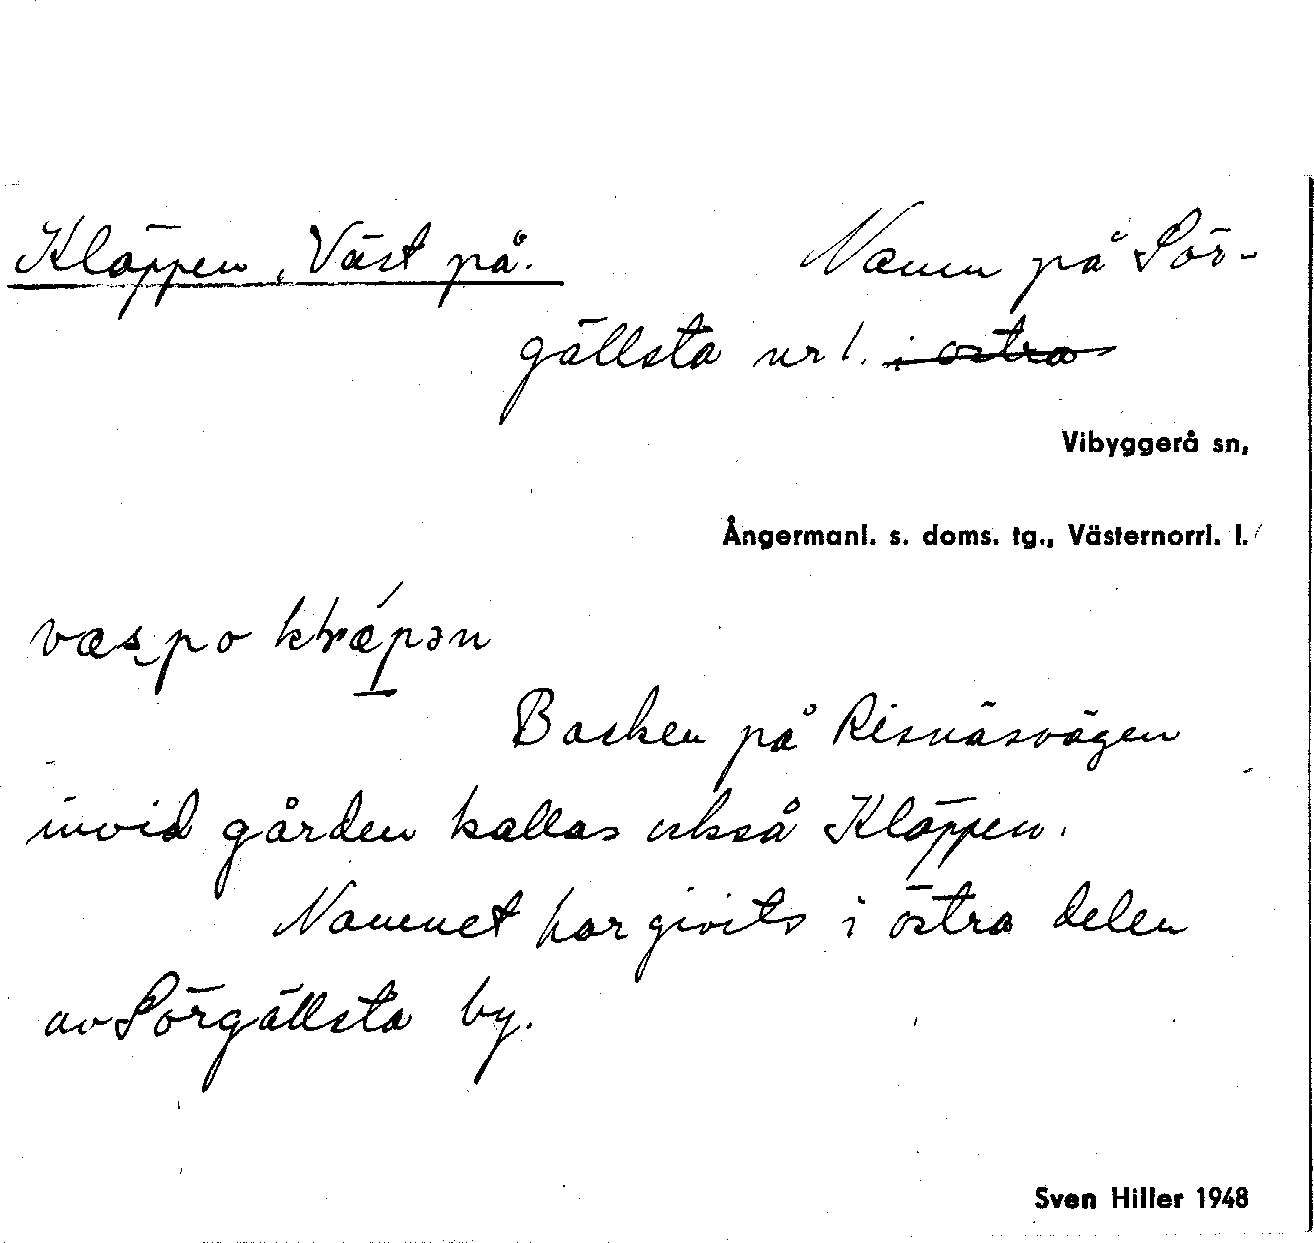 Kläppen, Väst på. Namn på Sör-
gällsta nr 1. i östra
Vibyggerå sn,
Ångermanl. s. doms. tg., Västernorrl. l.
Backen på Risnäsvägen
invid gården kallas också Kläppen.
Namnet har givits i östra delen
av Sörgällsta by.
Sven Hiller 1948